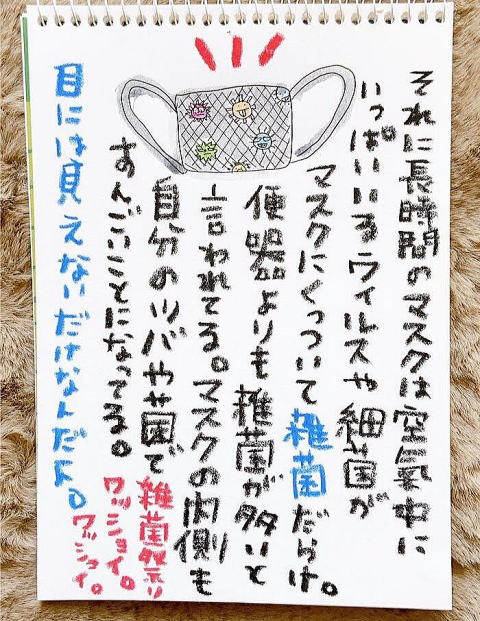 それに長時間のマスクは空氣中に
いっぱいいるウイルスや細菌が
マスクにくっついて雑菌だらけ。
便器よりも雑菌が多いと
言われてる。マスクの内側も
自分のツバや菌で
すんごいことになってる。
雑菌祭り
ワッショイ。
ワッショイ。
目には見えないだけなんだよ。